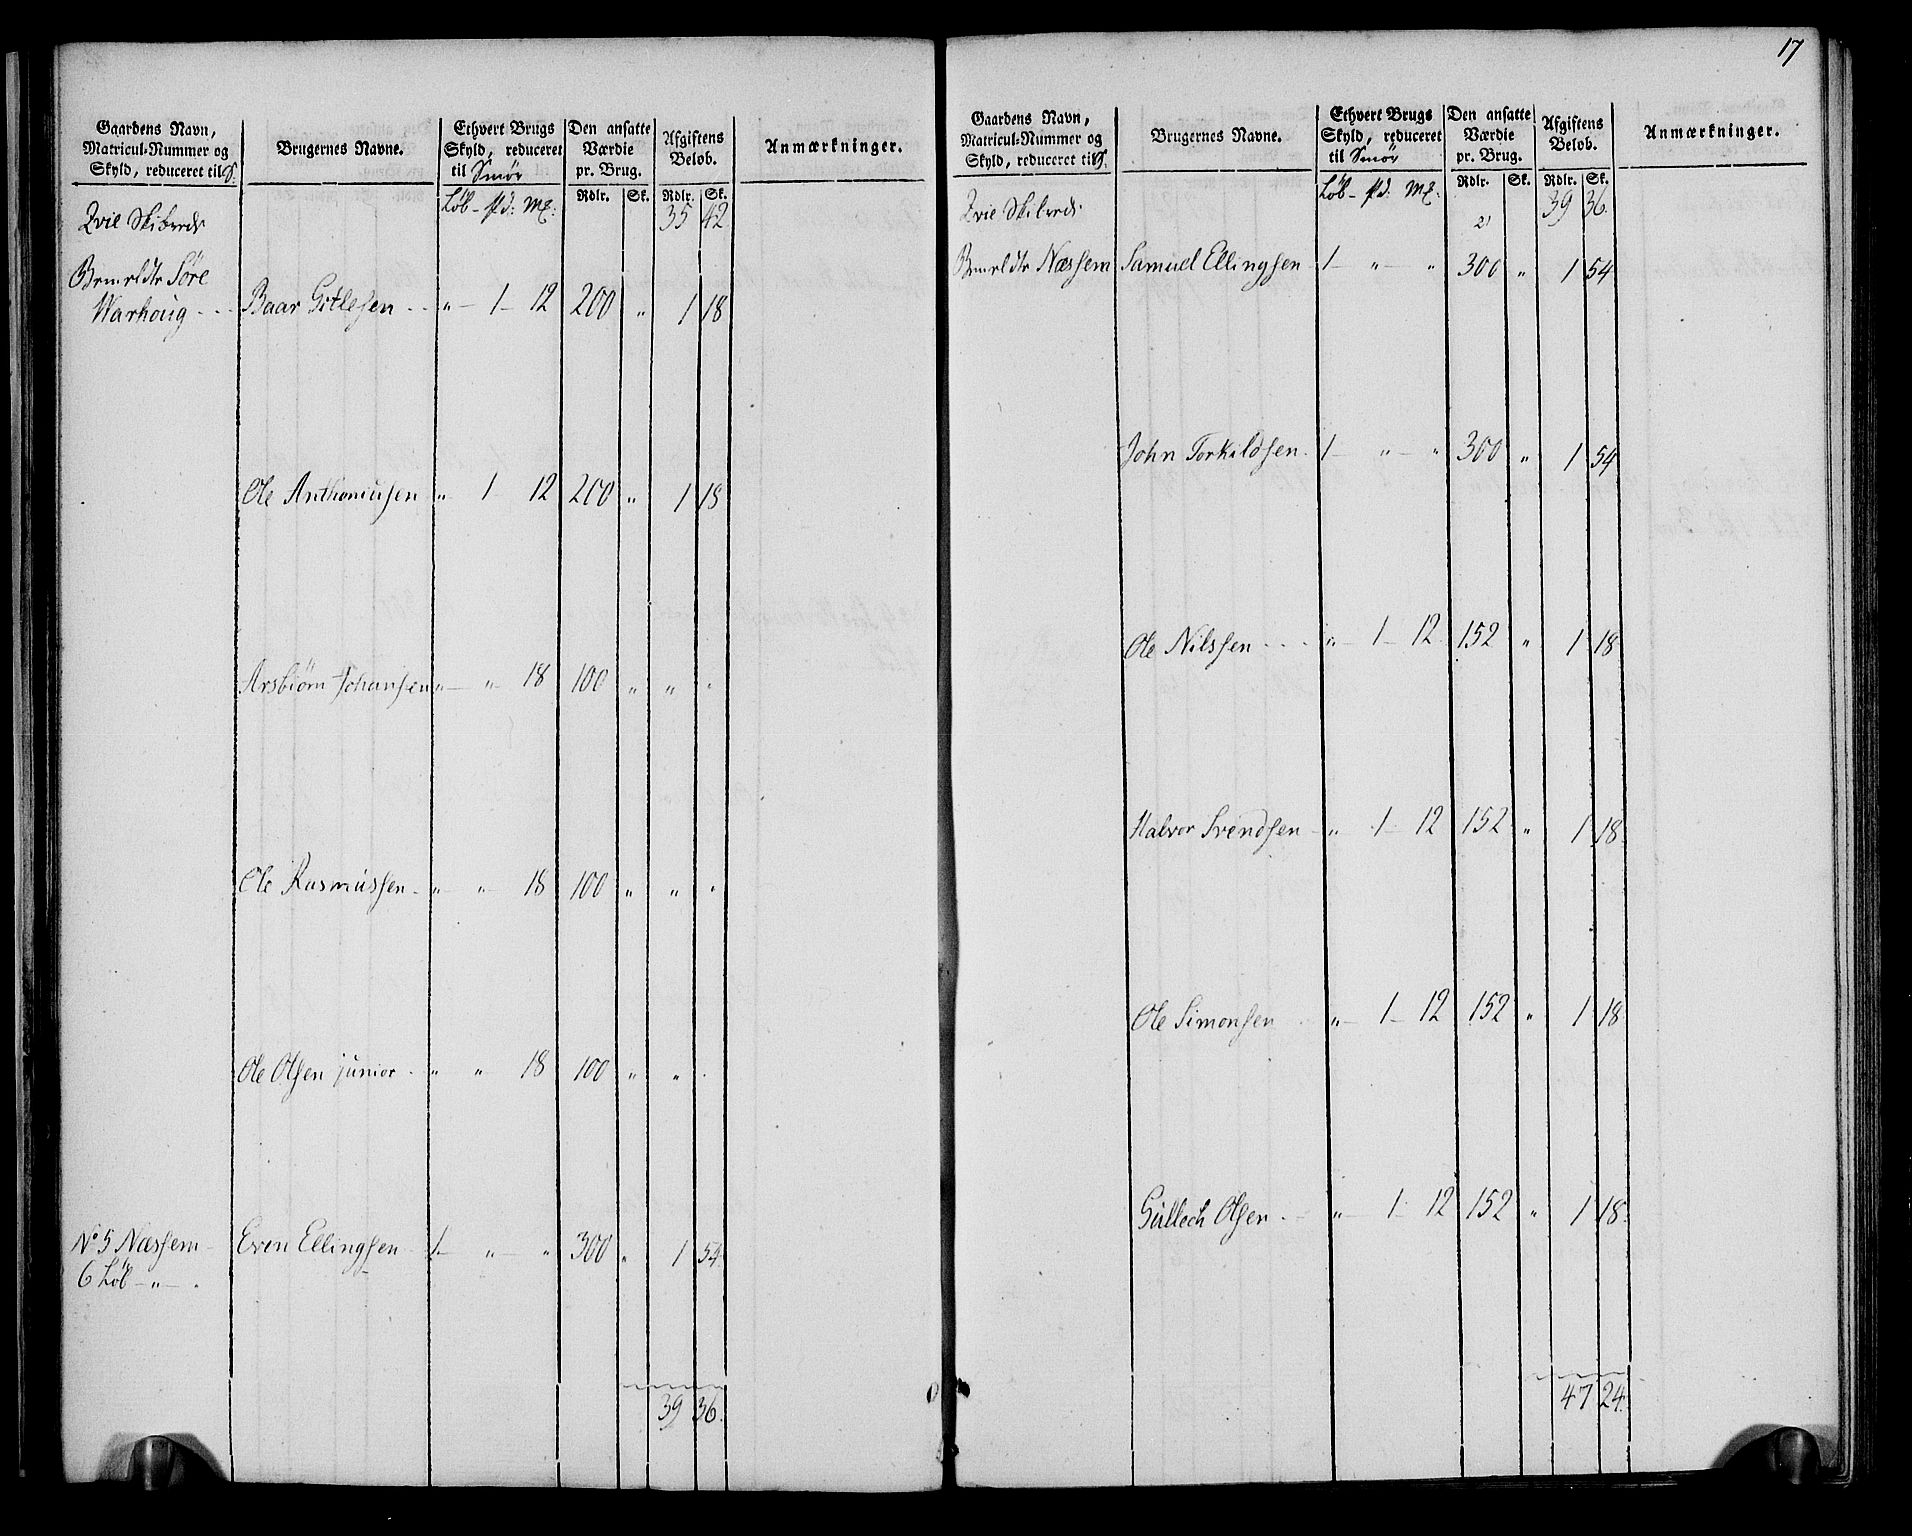 Gaardens Navn, Matricul-Nummer og Skyld, reduceret til S: | Brugernes Navne. | Ethvert Brugs Skyld, reduceret til Smör | Den ansatte Værdie pr. Brug. | Afgiftens Beløb. | Anmærkninger.
Löb - pd: Mk: | Rdlr. | Sk. | Rdlr. | Sk.
Qvie Skibrede 35 42
Søre
Warhoug - - - Baar Gitlesen - - „ - 1 - 12 200 „ 1 18
Ole Anthoniusen „ - 1 - 12 200 „ 1 18
Arsbiörn Johansen „ - „ - 18 100 „ „ „
Ole Rasmussen - „ - „ - 18 100 „ „ „
Ole Olsen junior - „ „ 18 100 „ „ .
No 5 Næssem - Even Ellingsen 1 - „ - „ 300 „ 1 54
6 Löb - „ - .
39 36.
17
Gaardens Navn, Matricul-Nummer og Skyld, reduceret til S. | Brugernes Navne. | Ethvert Brugs Skyld, reduceret til Smör | Den ansatte Værdie pr. Brug. | Afgiftens Beløb. | Anmærkninger.
Löb - pd: Mk: | Rdlr. | Sk. | Rdlr. | Sk.
Qvie Skibrede 39 36.
Næssem Samuel Ellingsen 1 - „ - „ 300 „ 1 54
John Torkildsen. 1 - „ - „ 300 „ 1 54
Ole Nilssen - - - - „ - 1 - 12 152 „ 1 18
Halvor Svendsen - „ - 1 - 12 152 „ 1 18.
Ole Simonsen „ - 1 - 12 152 „ 1 18
Gullech Olsen - - „ - 1 - 12 152 „ 1 18.
47 24.